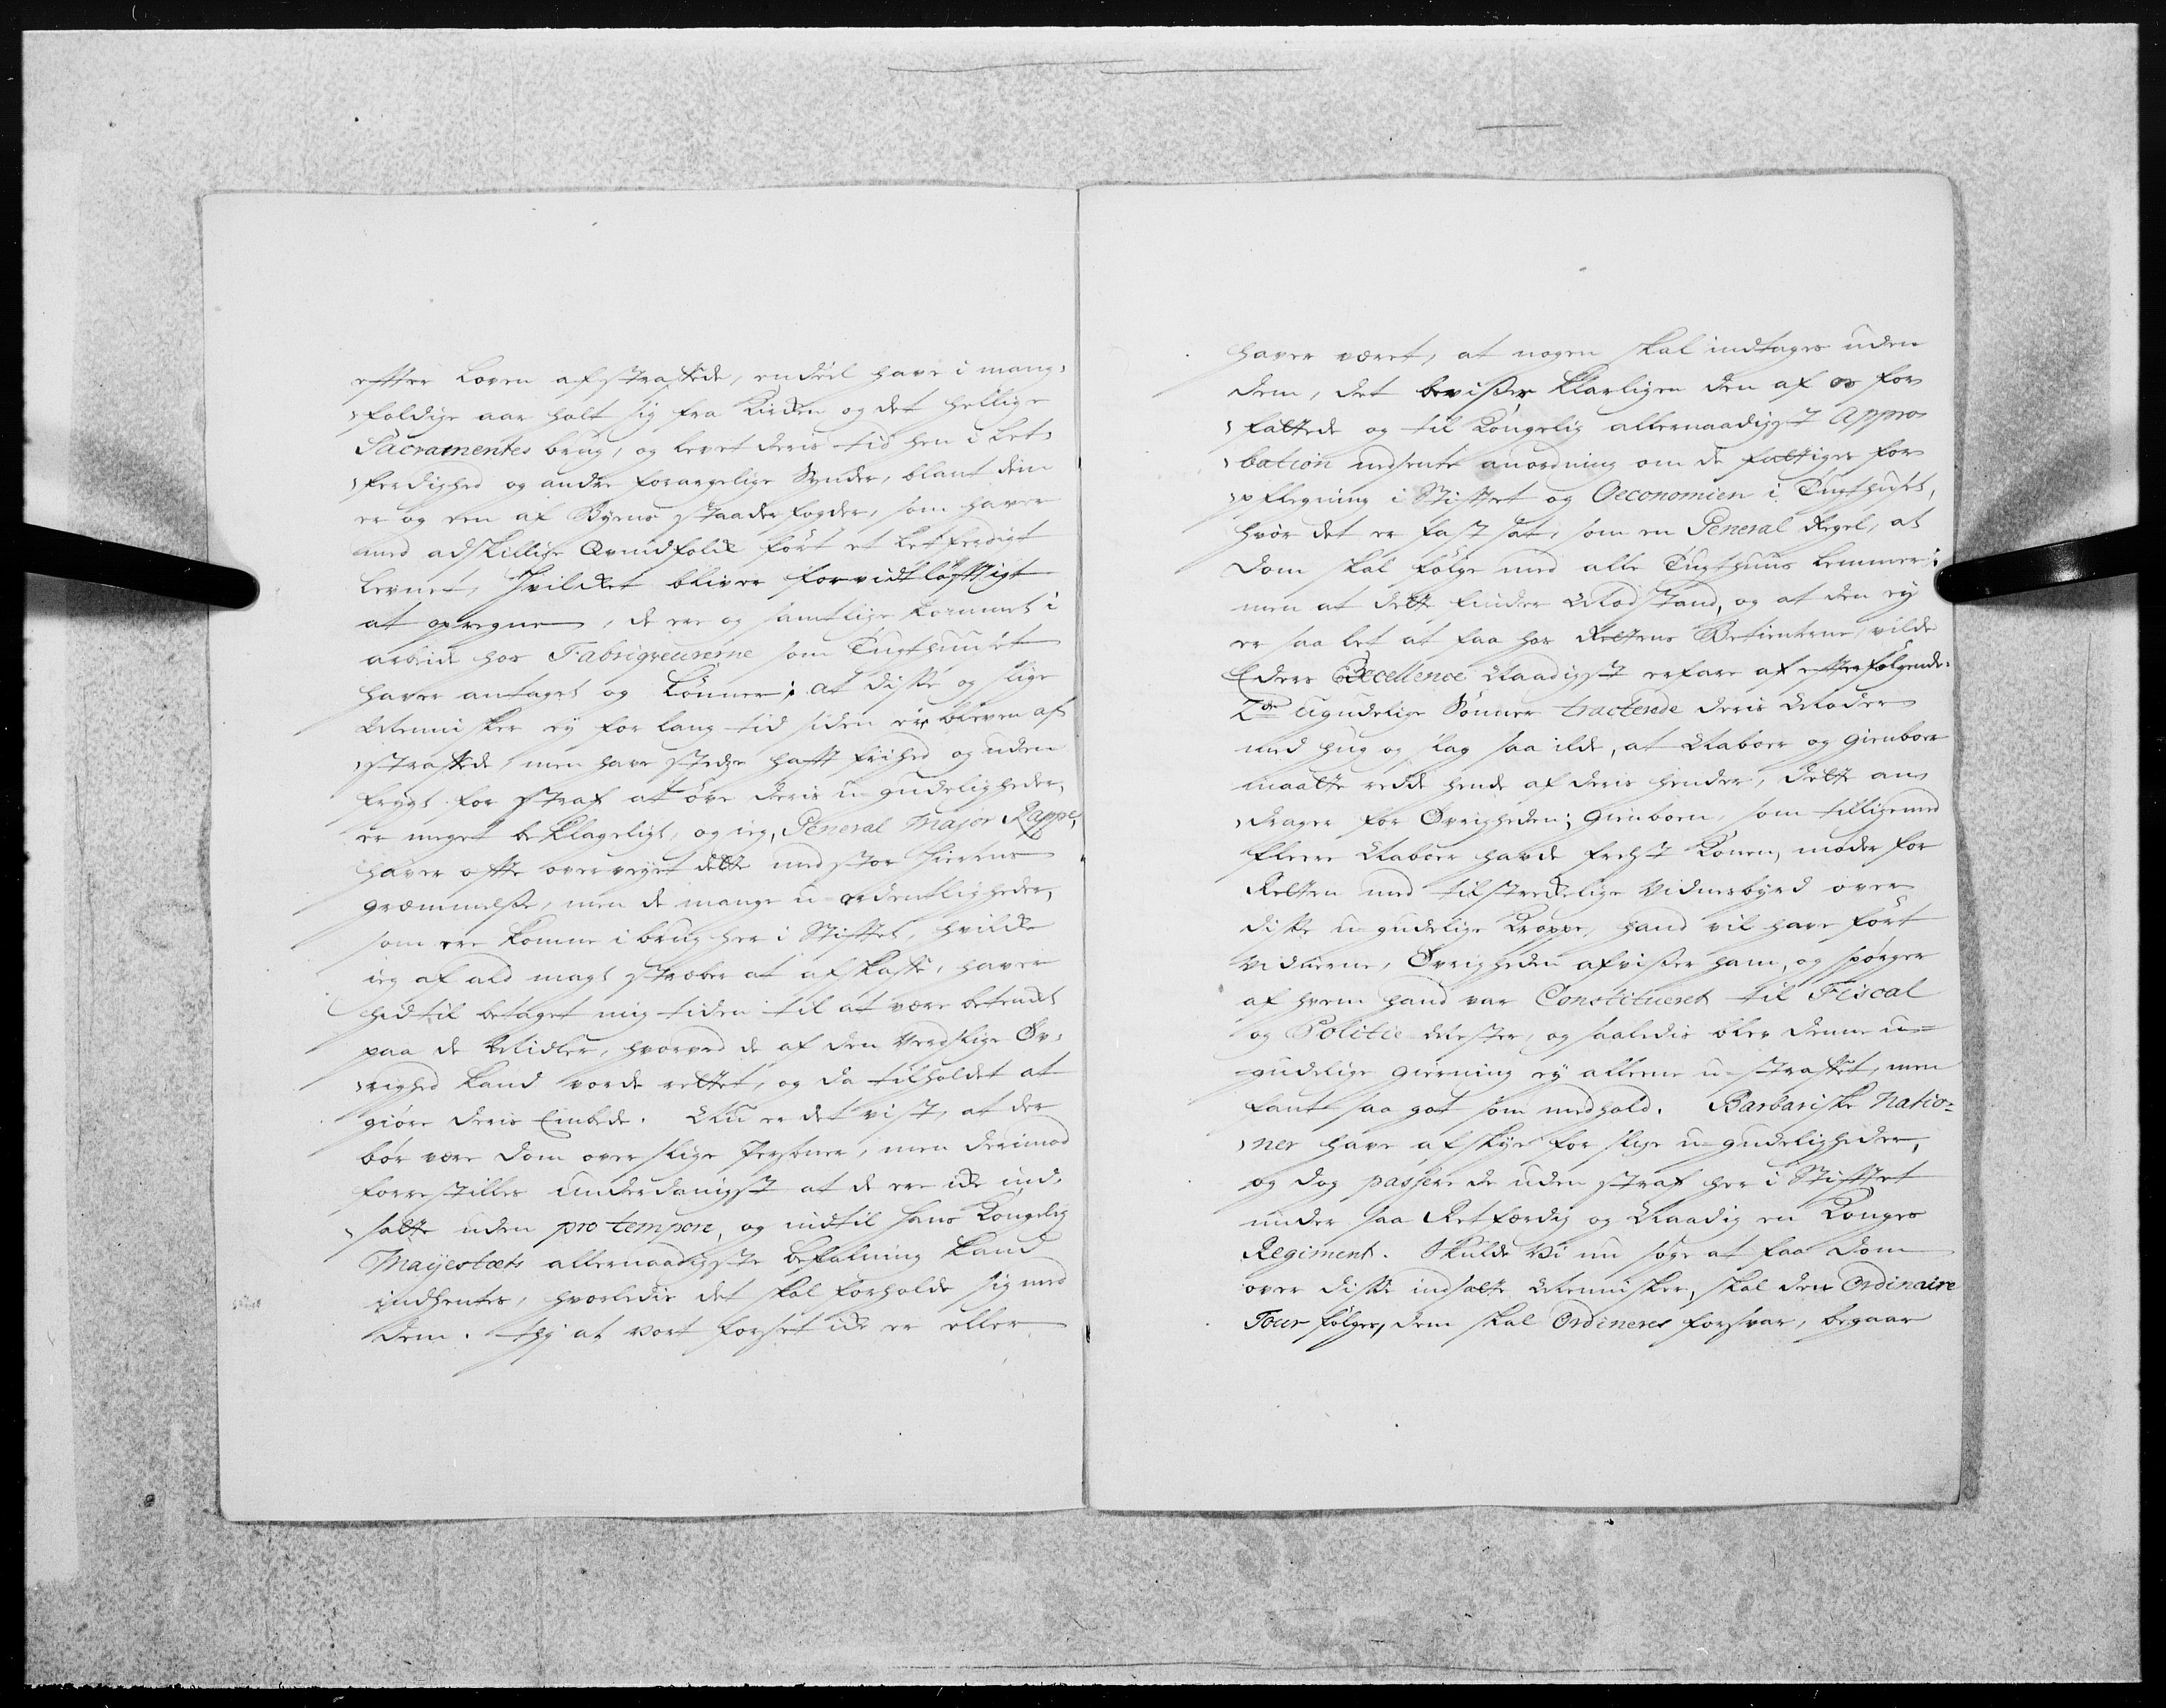 efter Loven afstraffede, endeel have i mang-
foldige aar holt sig fra Kirken og det hellige
Sacramentes brug, og levet deris tid hen i Let-
ferdighed og andre forargelige Synder, blant dem
er og een af Byens staader fogder, som haver
med adskillige Qvindfolk ført et Letferdigt
Levnet, Hvilket bliver forvidtløfftigt
at opregne, de ere og samtlige kommet i
arbeid hos Fabriqveurerne som Tugthuuset
haver antaget og Lønner; at disse og slige
Mennisker ey for lang tid siden ere bleven af-
straffede, men have stedse hafft frihed og uden
frygt for straf at øve deris u-gudeligheder,
er meget beklageligt, og ieg, General Major Rappe,
haver offte overveyet dette med stor Hiertens
græmmelsse, men de mange u-ordentligheder,
som ere komne i brug her i Stifftet, hvilke
ieg af ald magt stræber at afskaffe, haver
hidtil betaget mig tiden til at være betenkt
paa de Midler, hvorved de af den Verdslige Øv-
righed kand vorde rettet, og da tilholdet at
giøre deris Embede. Nu er det vist, at der
bør være dom over slige Personer, men derimod
forrestilles underdanigst at de ere ikke ind-
satte uden pro tempore, og indtil Hans Kongelig
Mayestæts allernaadigste befalning kand
indhentes, hvorledis det skal forholde sig med
dem. thj at vort forsæt ikke er eller
haver været, at nogen skal indtages uden
dem, det bevisser klarligen den af os for-
fattede og til Kongelig allernaadigst Appro-
bation nedsente anordning om de fattiges for-
pflegning i Stifftet og Oeconomien i Tugthuset,
hvor det er fast sat, som en General Regel, at
dom skal følge med alle Tugthuus Lemmer;
men at dette finder Modstand, og at den ey
er saa let at faa hos Rettens Betienterne, vilde
Eders Excellence Naadigst erfare af efterfølgende:
2de ugudelige Sønner tracterede deris Moder
med hug og slag saa ilde, at Naboer og gienboer
maatte redde hende af deris hender, dette an-
drager for Øvrigheden; gienboen, som tilligemed
fleere Naboer havde frelst Konen, møder for
Retten med tilstrekkelige vidnesbyrd over
disse u-gudelige Kroppe, hand vil have ført
vidnerne, Øvrigheden afvisser ham, og spørger
af hvem hand var Constitueret til Fiscal
og Politie Mester, og saaledis blev denne u-
gudelige gierning ey alleene u-straffet, men
fant saa got som medhold. Barbariske Natio-
ner have afskye for slige u-gudeligheder,
og dog passere de uden straf her i Stifftet
under saa Retfærdig og Naadig en Konges
Regiment. Skulde Vi nu søge at faa dom
over disse indsatte Mennisker, skal den Ordinaire
Tour følges, dem skal Ordineres forsvar, begaar